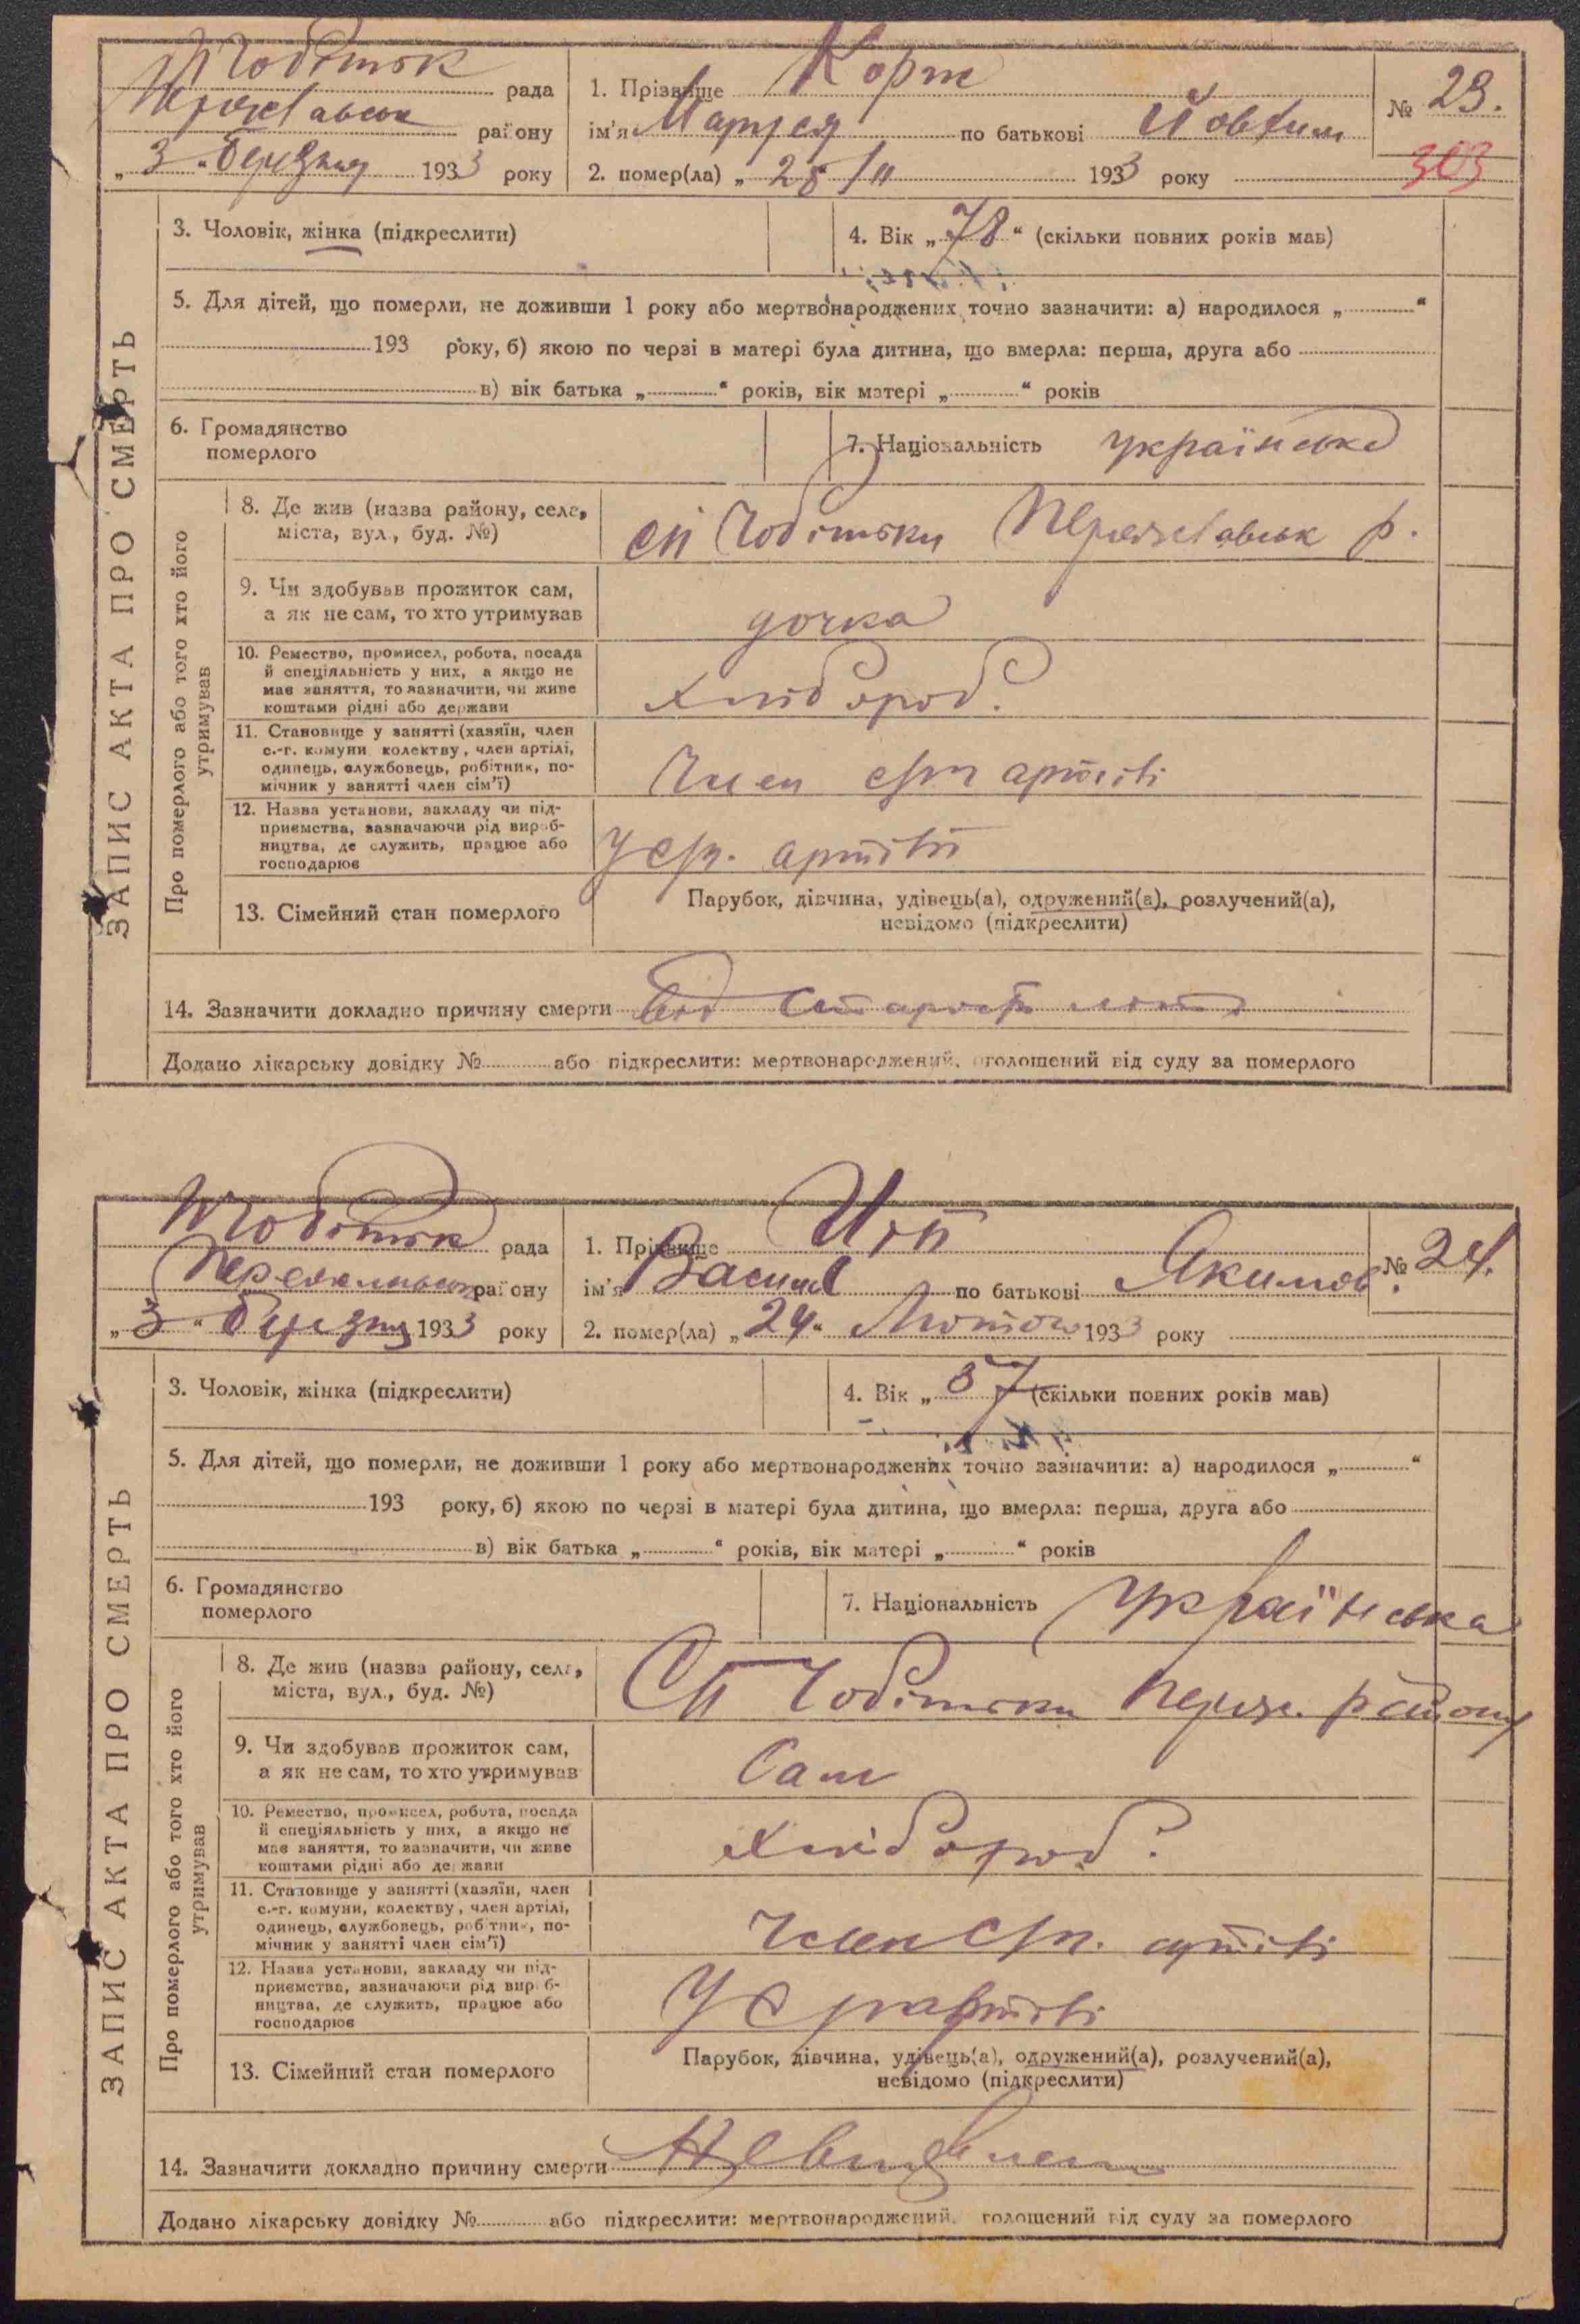 Чобітьк рада
Переяславськ району
„3“ березня 1933 року
1. Прізвище Корж
ім'я Маруся по батькові Йовхим
2. помер(ла) „ 25/II 1933 року
№ 23.
303
3. Чоловік, жінка (підкреслити)
4. Вік „78“ (скільки повних років мав)
5. Для дітей, що померли, не доживши 1 року або мертвонароджених точно зазначити: а) народилося „ “
193 року, б) якою по черзі в матері була дитина, що вмерла: перша, друга або
в) вік батька „ “ років, вік матері „ “ років
6. Громадянство
померлого
7. Національність українська
ЗАПИС АКТА ПРО СМЕРТЬ
Про померлого або того хто його
утримував
8. Де жив (назва району, села,
міста, вул., буд. №)
с Чобітьки Переяславськ р.
9. Чи здобував прожиток сам,
а як не сам, то хто утримував
дочка
10. Ремество, промисел, робота, посада
й спеціяльність у них, а якщо не
має заняття, то зазначити, чи живе
коштами рідні або держави
хлібороб.
11. Становище у занятті (хазяїн, член
с.-г. комуни колектву, член артілі,
одинець, службовець, робітник, по-
мічник у занятті член сім'ї)
Член с/г артілі
12. Назва установи, закладу чи під-
приємства, зазначаючи рід вироб-
ництва, де служить, працює або
господарює
У с/г. артілі
13. Сімейний стан померлого
Парубок, дівчина, удівець(а), одружений(а), розлучений(а),
невідомо (підкреслити)
14. Зазначити докладно причину смерти від старости
Додано лікарську довідку № або підкреслити: мертвонароджений, оголошений від суду за померлого
Чобітьк рада
Переяславськ району
„3“ березня 1933 року
1. Прізвище
ім'я Василь по батькові Якимов.
2. помер(ла) „24“ Лютого 1933 року
№ 24.
3. Чоловік, жінка (підкреслити)
4. Вік „ 37 (скільки повних років мав)
5. Для дітей, що померли, не доживши 1 року або мертвонароджених точно зазначити: а) народилося „ “
193 року, б) якою по черзі в матері була дитина, що вмерла: перша, друга або
в) вік батька „ “ років, вік матері „ “ років
6. Громадянство
померлого
7. Національність Українська
ЗАПИС АКТА ПРО СМЕРТЬ
Про померлого або того хто його
утримував
8. Де жив (назва району, села,
міста, вул., буд. №)
С Чобітьки Переяс. району
9. Чи здобував прожиток сам,
а як не сам, то хто утримував
Сам
10. Ремество, промисел, робота, посада
й спеціяльність у них, а якщо не
має заняття, то зазначити, чи живе
коштами рідні або держави
хлібороб.
11. Становище у занятті (хазяїн, член
с.-г. комуни, колектву, член артілі,
одинець, службовець, робітник, по-
мічник у занятті член сім'ї)
Член с/г. артілі
12. Назва установи, закладу чи під-
приємства, зазначаючи рід вироб-
ництва, де служить, працює або
господарює
У с/г артілі
13. Сімейний стан померлого
Парубок, дівчина, удівець(а), одружений(а), розлучений(а),
невідомо (підкреслити)
14. Зазначити докладно причину смерти
Додано лікарську довідку № або підкреслити: мертвонароджений, голошений від суду за померлого